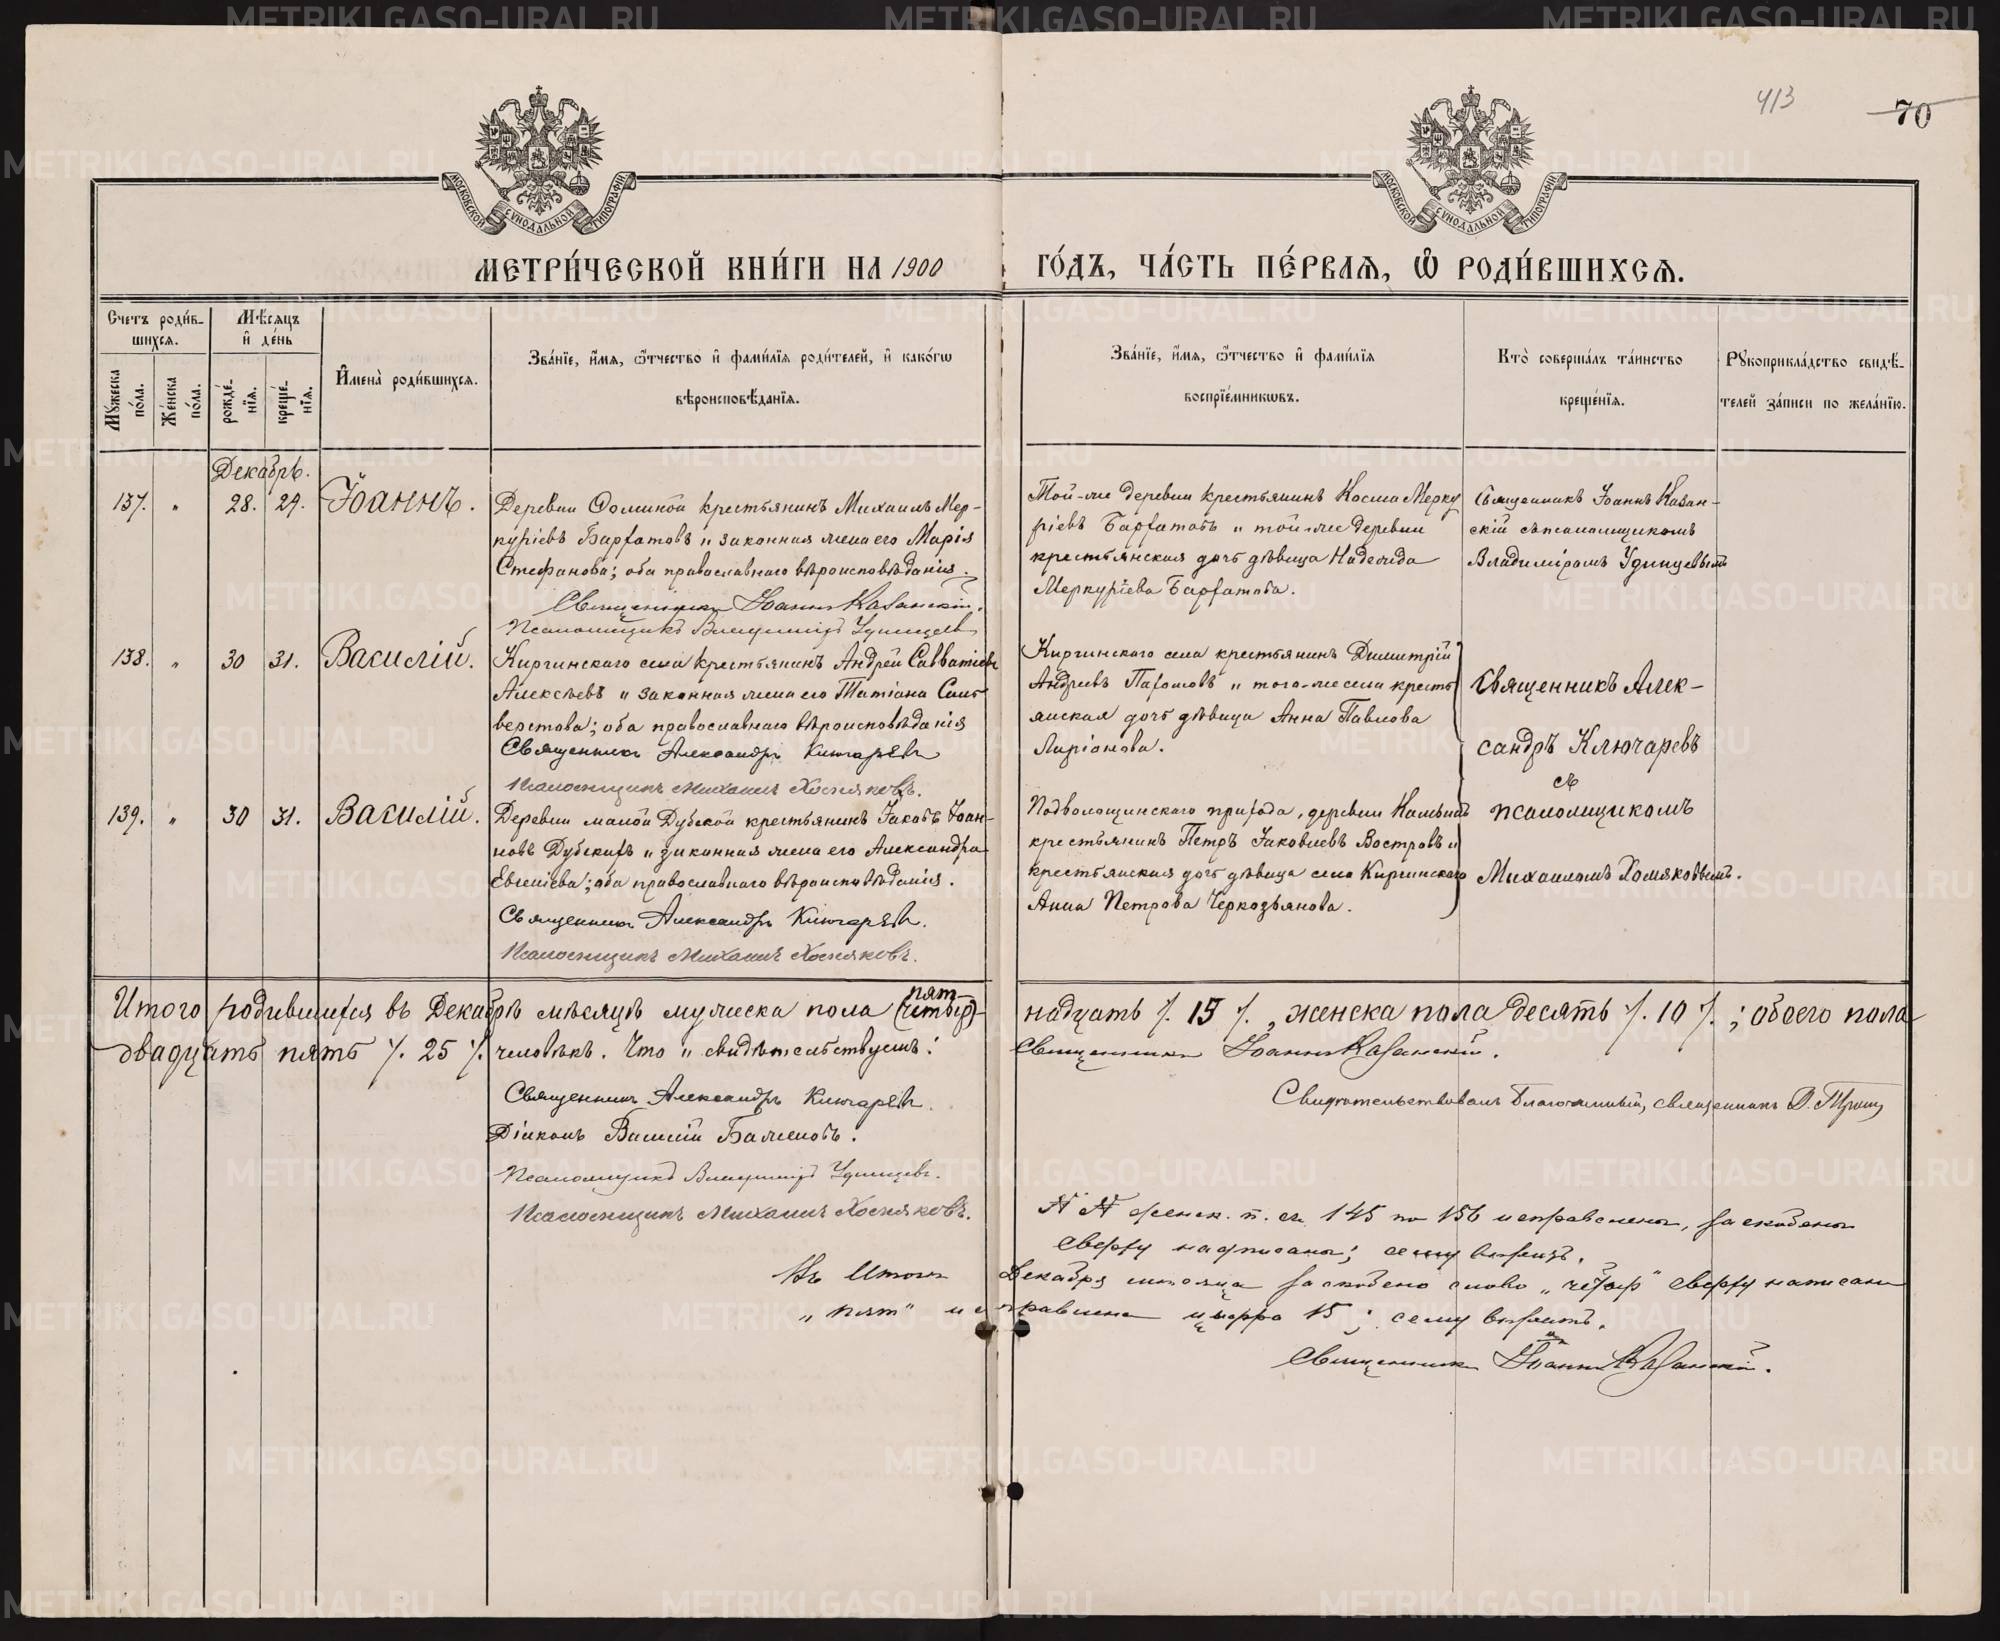 413
70
МОСКОВСКОЙ СѴНОДАЛЬНОЙ ТИПОГРАФІИ
МОСКОВСКОЙ СѴНОДАЛЬНОЙ ТИПОГРАФІИ
МЕТРИ́ЧЕСКОЙ КНИ́ГИ НА 1900 ГО́ДЪ, ЧА́СТЬ ПЕ́РВАЯ, Ѡ РОДИ́ВШИХСЯ.
Счетъ роди́в-
шихся.
Мѣ́сяцъ
и҆ де́нь
Мꙋжеска по́ла.
Же́нска по́ла.
рожде́-
нїя.
креще́-
нїя.
И҆мена̀ роди́вшихся.
Зва́нїе, и҆́мя, ѻ҆́тчество и҆ фами́лїя роди́телей, и҆ како́гѡ
вѣроисповѣ́данїя.
Зва́нїе, и҆́мя, ѻ҆́тчество и҆ фами́лїя
воспрїе́мникѡвъ.
Кто̀ соверша́лъ та́инство
креще́нїя.
Рꙋкоприкла́дство свидѣ́-
телей за́писи по жела́нїю.
Декабрь.
137. " 28. 29. Іоаннъ.
Деревни Ѳоминой крестьянинъ Михаилъ Мер-
курiевъ Бархатовъ и законная жена его Марія
Стефанова; оба православнаго вѣроисповѣданія.
Священникъ Іоаннъ Казанскій.
Псаломщикъ Владиміръ Удинцевъ
Той-же деревни крестьянинъ Косма Мерку
ріевъ Бархатовъ и той-же деревни
крестьянская дочь дѣвица Надежда
Меркуріева Бархатова.
Священникъ Іоаннъ Казан-
скій съ псаломщикомъ
Владиміромъ Удинцевымъ
138. " 30 31. Василій.
Киргинскаго села крестьянинъ Андрей Савватіевъ
Алексѣевъ и законная жена его Татіана Силь
верстова; оба православнаго вѣроисповѣданія
Священникъ Александръ Ключаревъ
Псаломщикъ Михаилъ Хомяковъ.
Киргинскаго села крестьянинъ Димитрій
Андреевъ Пахомовъ и того-же села кресть
янская дочь дѣвица Анна Павлова
Ларіонова.
Священникъ Алек-
сандръ Ключаревъ
съ
псаломщикомъ
Михаиломъ Хомяковымъ.
139. " 30 31. Василій.
Деревни малой Дубской крестьянинъ Іаковъ Іоан-
новъ Дубскихъ и законная жена его Александра
Евгеніева; оба православнаго вѣроисповѣданія.
Священникъ Александръ Ключаревъ.
Псаломщикъ Михаилъ Хомяковъ.
Подволощинскаго прихода, деревни
крестьянинъ Петръ Іаковлевъ Востровъ и
крестьянская дочь дѣвица села Киргинскаго
Анна Петрова Черкозьянова.
пят-
Итого родившихся въ Декабрѣ мѣсяцѣ мужеска пола (четыр)- надцать /. 15 /., женска пола десять /. 10 /.; обоего пола
двадцать пять /. 25 /. человѣкъ. Что и свидѣтельствуемъ:
Священникъ Іоаннъ Казанскій.
Священникъ Александръ Ключаревъ.
Свидѣтельствовалъ Благочинный, священникъ
Діаконъ Василій Баженовъ.
Псаломщикъ Владиміръ Удинцевъ.
Псаломщикъ Михаилъ Хомяковъ.
№ № женск. п. съ 145 по 156 исправлены, заскоблены
сверху надписаны; сему вѣрить.
Въ итогѣ Декабря мѣсяца заскоблено слово „четыр" сверху написано
„пят" и исправлена цыфра 15; сему вѣрить.
Священникъ Іоаннъ Казанскій.
METRIKI.GASO-URAL.RU